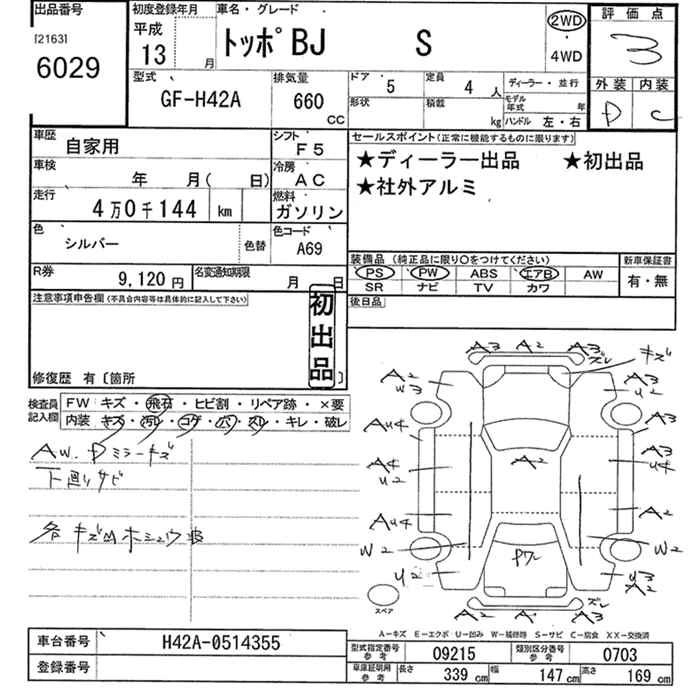 出品番号 初度登録年月 車名・グレード 2WD 評価点
[2163] 平成 トッポBJ S 3
6029 13 月 4WD
型式 排気量 ドア 5 定員 4 人 ディーラー・並行 外装 内装
GF-H42A 660 CC 形状 積載 kg モデル年式 年 D C
ハンドル 左・右
車歴 自家用 シフト F5 セールスポイント(正常に機能するものに限ります)
車検 年 月( 日) 冷房 AC ★ディーラー出品 ★初出品
走行 4万0千144 km 燃料 ガソリン ★社外アルミ
色 シルバー 色替 色コード A69
装備品(純正品に限り○をつけてください) 新車保証書
R券 9,120円 名変通知期限 月 日 PS PW ABS エアB AW 有・無
SR ナビ TV カワ
注意事項申告欄(不具合内容等は具体的に記入して下さい) 初出品 後日品
修復歴 有〔箇所 〕
検査員記入欄 FW キズ・飛石・ヒビ割・リペア跡・×要
内装 キズ・汚れ・コゲ・穴・スレ・キレ・破レ
AW.Dミラーキズ
下廻りサビ
各キズ凹
A3 A2 A3 ズレ キズ
A2 W3 A3 U2
AU4 A3
A4 U2 A2 A3 U4
AU4 A2
W2 W2
U2 U3 A2
スペア A2 A2 ズレ
A-キズ E-エクボ U-凹み W-補修跡 S-サビ C-腐食 XX-交換済
車台番号 H42A-0514355
型式指定番号 参考 09215 類別区分番号 参考 0703
登録番号
車庫証明用 参考 長さ 339 cm 幅 147 cm 高さ 169 cm